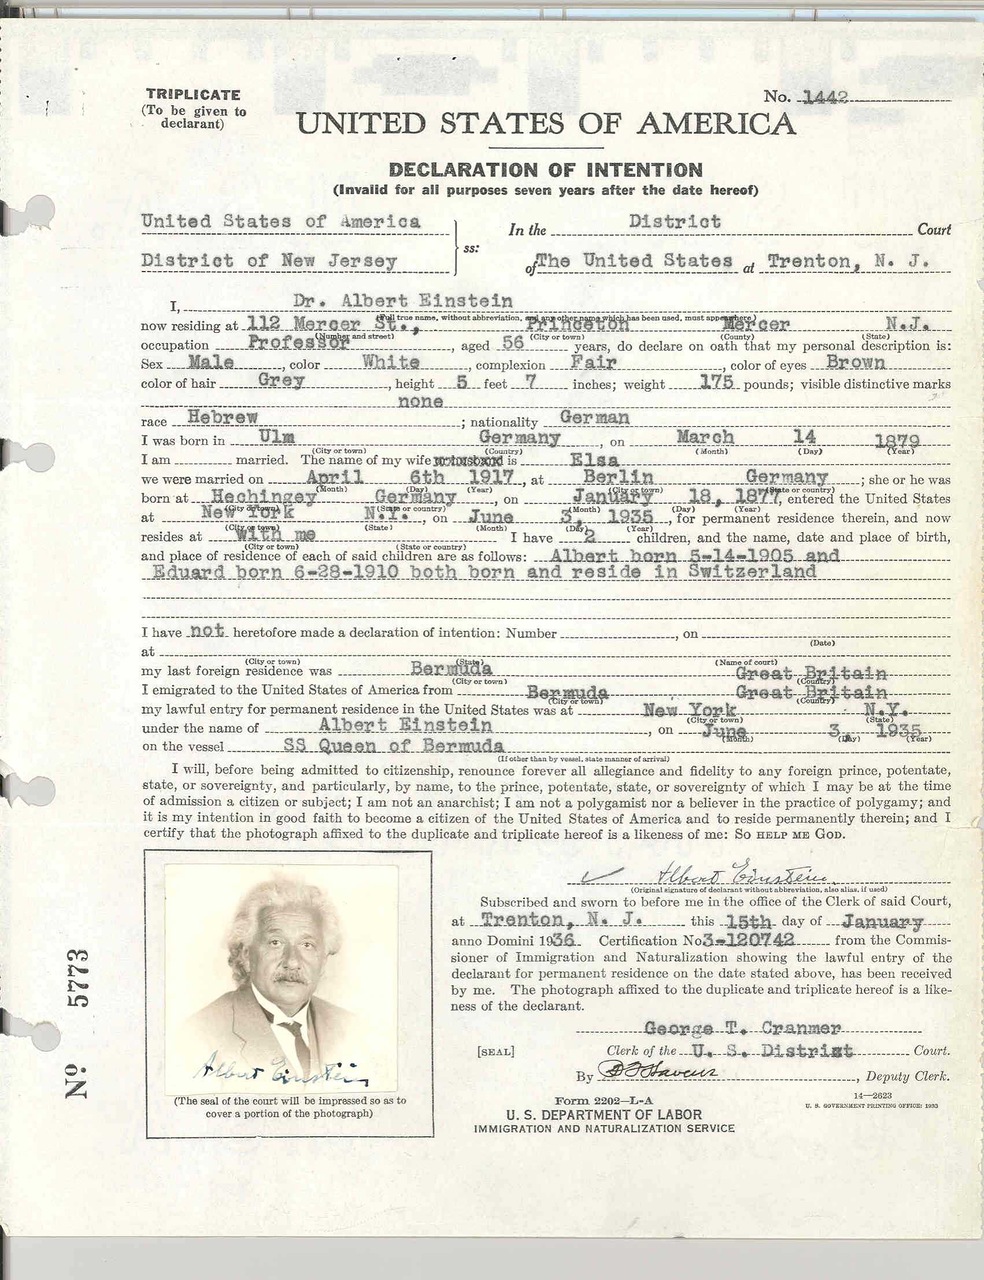 TRIPLICATE
(To be given to
declarant)
No. 1442
UNITED STATES OF AMERICA
DECLARATION OF INTENTION
(Invalid for all purposes seven years after the date hereof)
United States of America
District of New Jersey
ss:
In the District Court
of The United States at Trenton, N. J.
I, Dr. Albert Einstein
(Full true name, without abbreviation, and any other name which has been used, must appear here)
now residing at 112 Mercer St., Princeton Mercer N.J.
(Number and street) (City or town) (County) (State)
occupation Professor, aged 56 years, do declare on oath that my personal description is:
Sex Male, color White, complexion Fair, color of eyes Brown
color of hair Grey, height 5 feet 7 inches; weight 175 pounds; visible distinctive marks
none
race Hebrew; nationality German
I was born in Ulm Germany, on March 14 1879
(City or town) (Country) (Month) (Day) (Year)
I am married. The name of my wife is Elsa
we were married on April 6th 1917, at Berlin Germany; she or he was
(Month) (Day) (Year) (City or town) (State or country)
born at Hechingey Germany, on January 18, 1877, entered the United States
(City or town) (State or country) (Month) (Day) (Year)
at New York N.Y., on June 3, 1935, for permanent residence therein, and now
(City or town) (State) (Month) (Day) (Year)
resides at with me I have 2 children, and the name, date and place of birth,
(City or town) (State or country)
and place of residence of each of said children are as follows: Albert born 5-14-1905 and
Eduard born 6-28-1910 both born and reside in Switzerland
I have not heretofore made a declaration of intention: Number, on
(Date)
at
(City or town) (State) (Name of court)
my last foreign residence was Bermuda Great Britain
(City or town) (Country)
I emigrated to the United States of America from Bermuda Great Britain
(City or town) (Country)
my lawful entry for permanent residence in the United States was at New York N.Y.
(City or town) (State)
under the name of Albert Einstein, on June 3, 1935
(Month) (Day) (Year)
on the vessel SS Queen of Bermuda
(If other than by vessel, state manner of arrival)
I will, before being admitted to citizenship, renounce forever all allegiance and fidelity to any foreign prince, potentate,
state, or sovereignty, and particularly, by name, to the prince, potentate, state, or sovereignty of which I may be at the time
of admission a citizen or subject; I am not an anarchist; I am not a polygamist nor a believer in the practice of polygamy; and
it is my intention in good faith to become a citizen of the United States of America and to reside permanently therein; and I
certify that the photograph affixed to the duplicate and triplicate hereof is a likeness of me: SO HELP ME GOD.
Albert Einstein
(Original signature of declarant without abbreviation, also alias, if used)
Subscribed and sworn to before me in the office of the Clerk of said Court,
at Trenton, N. J. this 15th day of January
anno Domini 1936. Certification No 3-120742 from the Commis-
sioner of Immigration and Naturalization showing the lawful entry of the
declarant for permanent residence on the date stated above, has been received
by me. The photograph affixed to the duplicate and triplicate hereof is a like-
ness of the declarant.
George T. Cranmer
[SEAL] Clerk of the U. S. District Court.
By, Deputy Clerk.
Form 2202—L-A
U. S. DEPARTMENT OF LABOR
IMMIGRATION AND NATURALIZATION SERVICE
14—2623
U. S. GOVERNMENT PRINTING OFFICE: 1933
Albert Einstein
(The seal of the court will be impressed so as to
cover a portion of the photograph)
No. 5773